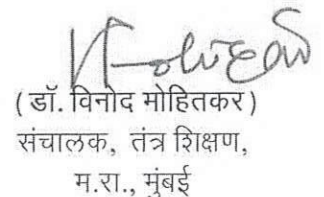 (डॉ. विनोद मोहितकर)
संचालक, तंत्र शिक्षण,
म.रा., मुंबई